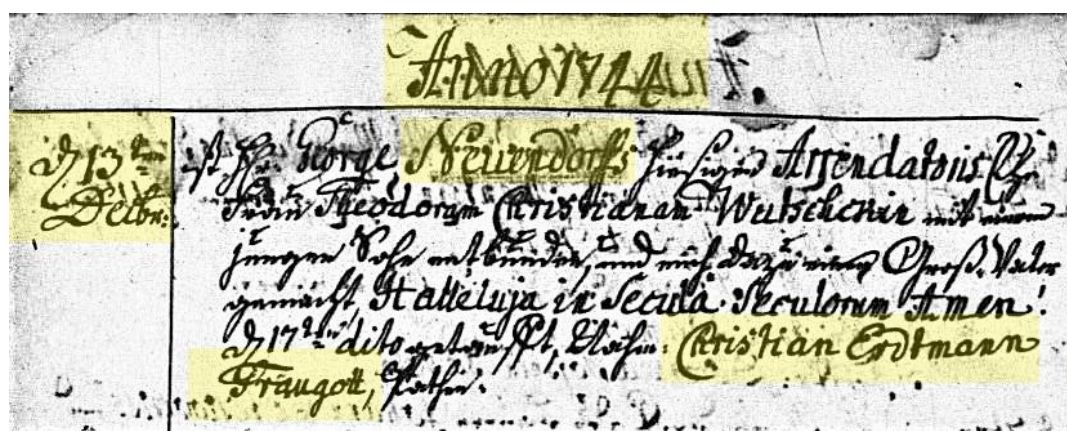 Anno 1744
d 13ten ist Hr. George Neuendorffs hiesigen Arrendatoris Ehe
Decbr: Frau Theodoram Christianam Wutschkein mit einem
jungen Sohn entbunden, und mich dazu einen Groß-Vater
gemacht, Halleluja in Secula Seculorum Amen!
d 17ten dito getaufft, Nahm: Christian Erdtmann
Traugott, Pathen: